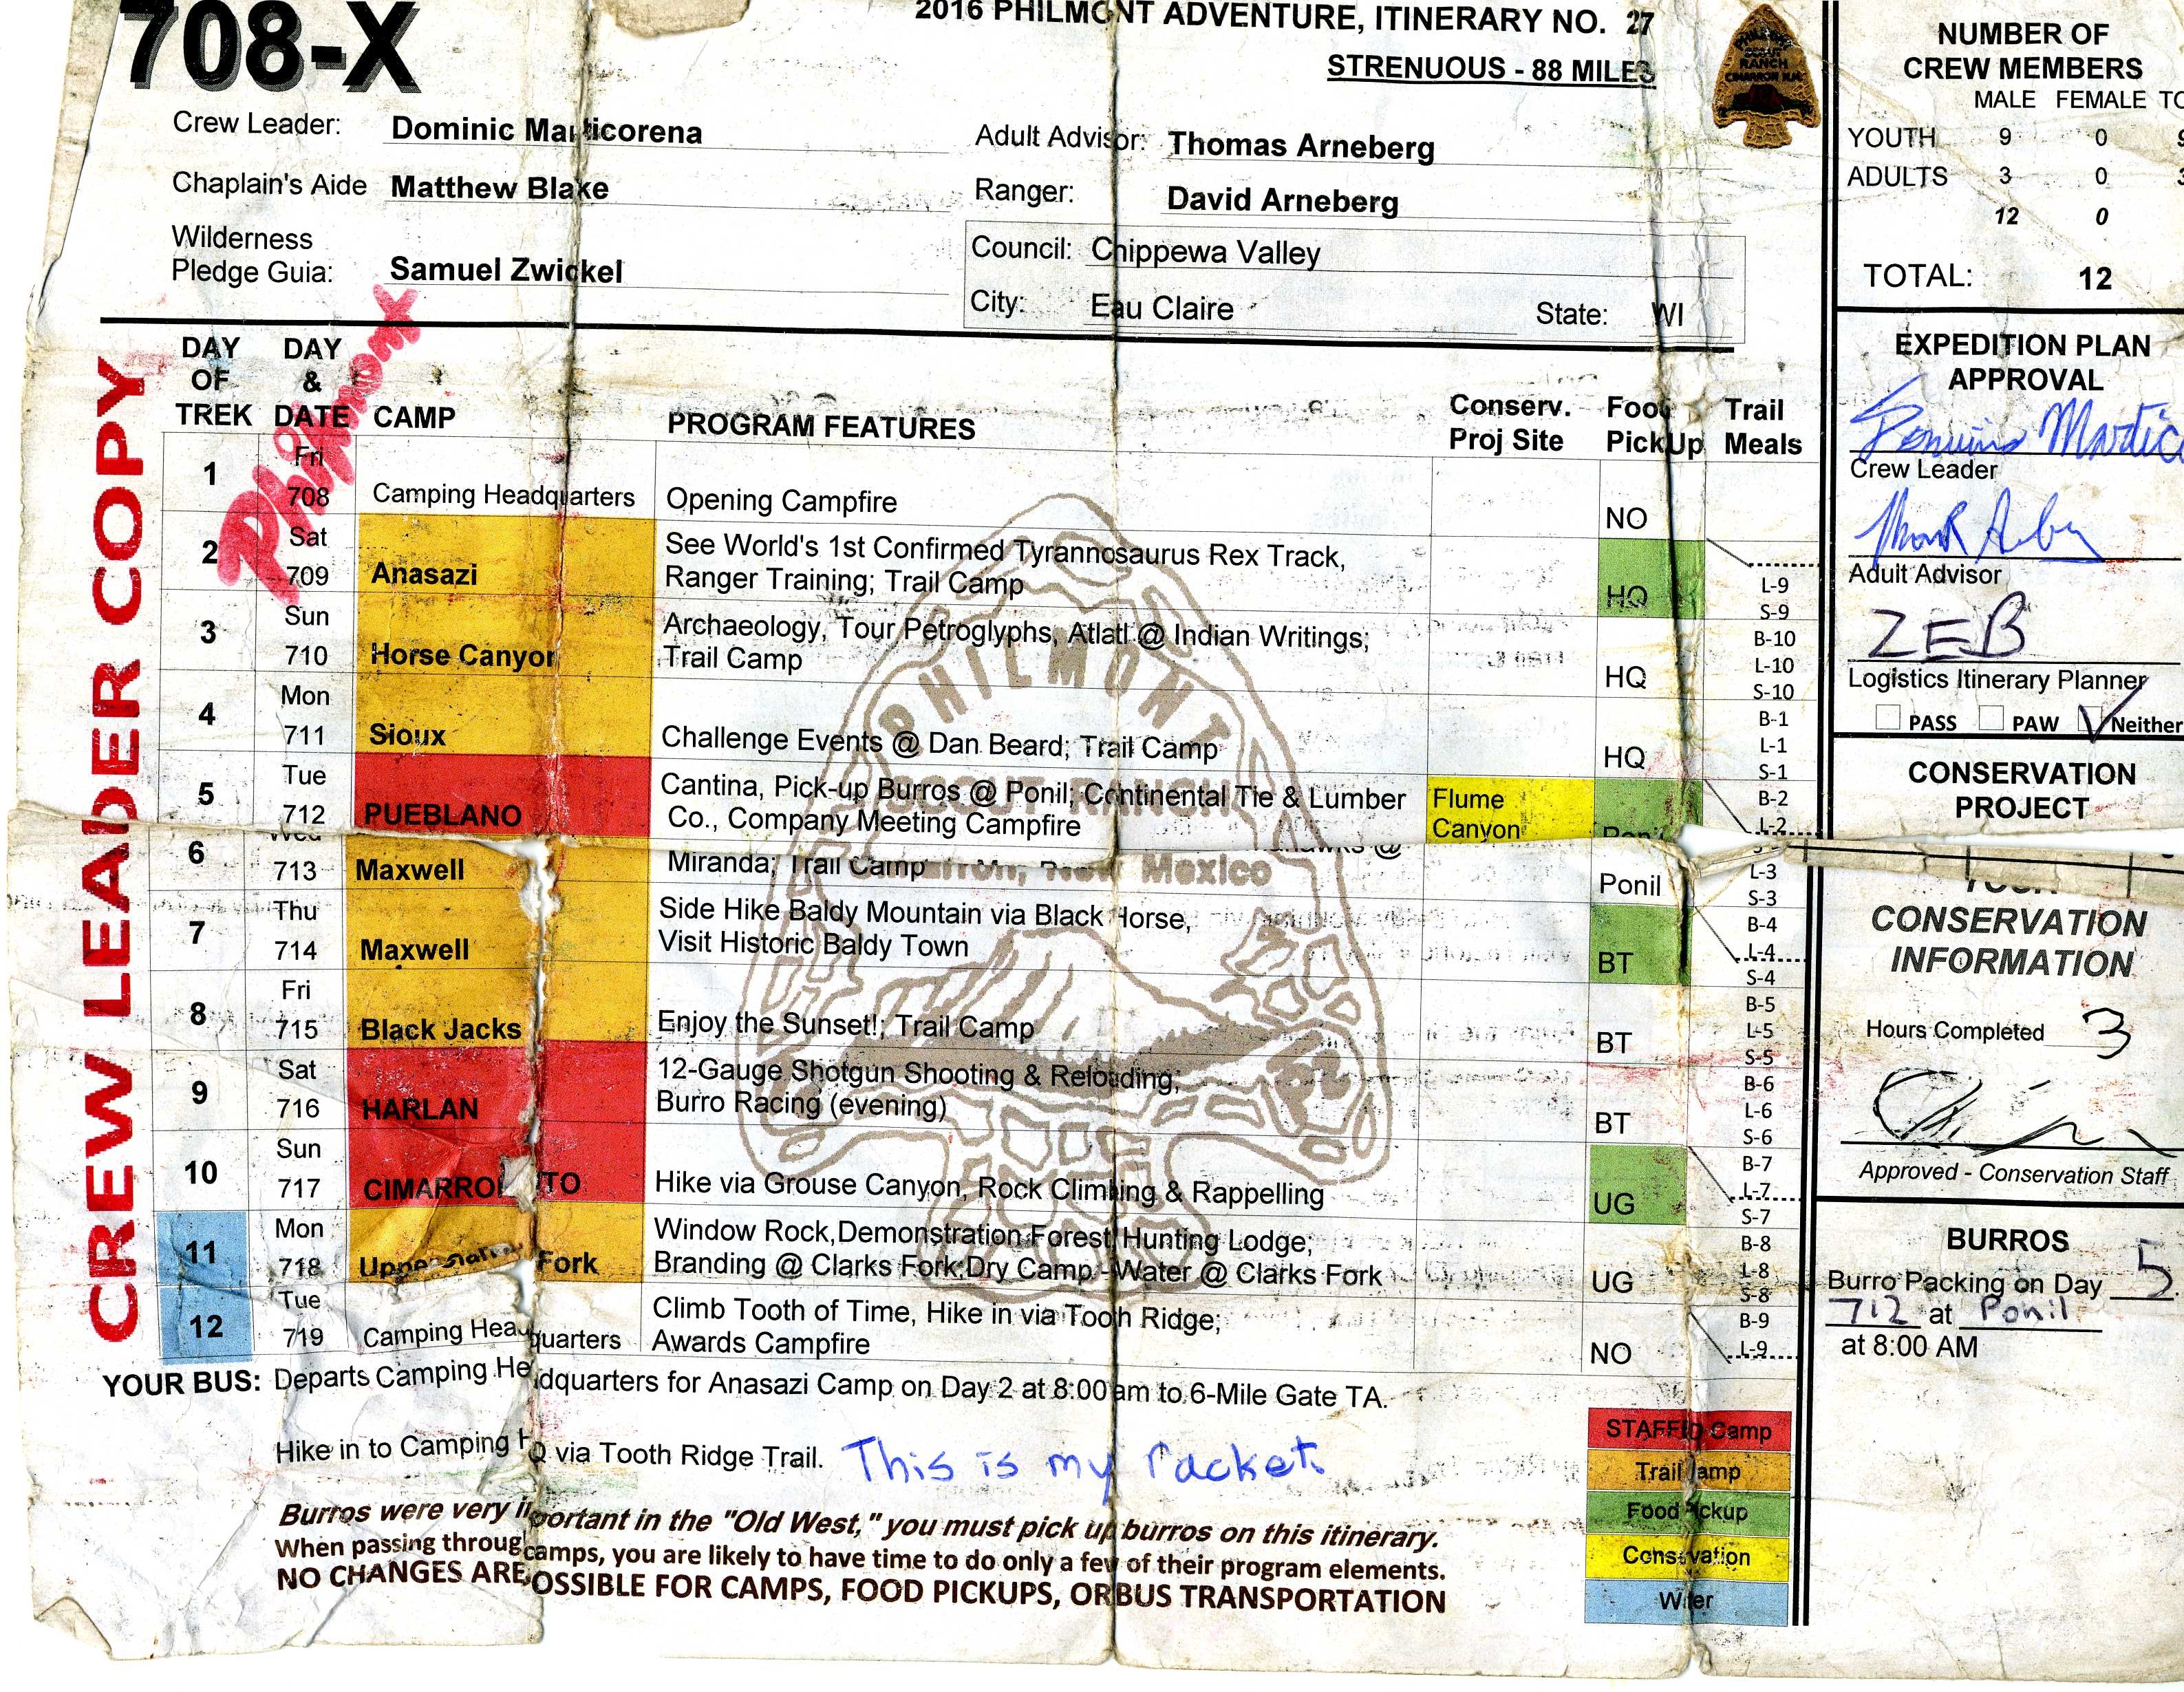 708-X
2016 PHILMONT ADVENTURE, ITINERARY NO. 27
STRENUOUS - 88 MILES
PHILMONT SCOUT RANCH CIMARRON N.M.
Crew Leader: Dominic Marticorena
Adult Advisor: Thomas Arneberg
Chaplain's Aide Matthew Blake
Ranger: David Arneberg
Wilderness
Pledge Guia: Samuel Zwickel
Council: Chippewa Valley
City: Eau Claire State: WI
NUMBER OF
CREW MEMBERS
MALE FEMALE TO
YOUTH 9 0 9
ADULTS 3 0 3
12 0
TOTAL: 12
CREW LEADER COPY
Philmont
DAY OF TREK DAY & DATE CAMP PROGRAM FEATURES Conserv. Proj Site Food PickUp Trail Meals
1 Fri 708 Camping Headquarters Opening Campfire NO
2 Sat 709 Anasazi See World's 1st Confirmed Tyrannosaurus Rex Track,
Ranger Training; Trail Camp HQ L-9 S-9
3 Sun 710 Horse Canyon Archaeology, Tour Petroglyphs, Atlatl @ Indian Writings;
Trail Camp HQ B-10 L-10 S-10
4 Mon 711 Sioux Challenge Events @ Dan Beard; Trail Camp HQ B-1 L-1 S-1
5 Tue 712 PUEBLANO Cantina, Pick-up Burros @ Ponil; Continental Tie & Lumber
Co., Company Meeting Campfire Flume Canyon Ponil B-2 L-2
6 Wed 713 Maxwell @
Miranda; Trail Camp Ponil L-3 S-3
7 Thu 714 Maxwell Side Hike Baldy Mountain via Black Horse,
Visit Historic Baldy Town BT B-4 L-4 S-4
8 Fri 715 Black Jacks Enjoy the Sunset!; Trail Camp BT B-5 L-5 S-5
9 Sat 716 HARLAN 12-Gauge Shotgun Shooting & Reloading,
Burro Racing (evening) BT B-6 L-6 S-6
10 Sun 717 CIMARRO TO Hike via Grouse Canyon, Rock Climbing & Rappelling UG B-7 L-7 S-7
11 Mon 718 Upper Fork Window Rock, Demonstration Forest, Hunting Lodge;
Branding @ Clarks Fork; Dry Camp - Water @ Clarks Fork UG B-8 L-8 S-8
12 Tue 719 Camping Headquarters Climb Tooth of Time, Hike in via Tooth Ridge;
Awards Campfire NO B-9 L-9
PHILMONT
SCOUT RANCH
Cimarron, New Mexico
YOUR BUS: Departs Camping Headquarters for Anasazi Camp on Day 2 at 8:00 am to 6-Mile Gate TA.
Hike in to Camping HQ via Tooth Ridge Trail. This is my racket
Burros were very important in the "Old West," you must pick up burros on this itinerary.
When passing through camps, you are likely to have time to do only a few of their program elements.
NO CHANGES ARE POSSIBLE FOR CAMPS, FOOD PICKUPS, OR BUS TRANSPORTATION
STAFFED Camp
Trail Camp
Food Pickup
Conservation
Water
EXPEDITION PLAN
APPROVAL
Crew Leader
Adult Advisor
ZEB
Logistics Itinerary Planner
PASS PAW Neither
CONSERVATION
PROJECT
YOUR
CONSERVATION
INFORMATION
Hours Completed 3
Approved - Conservation Staff
BURROS
Burro Packing on Day 5
712 at Ponil
at 8:00 AM